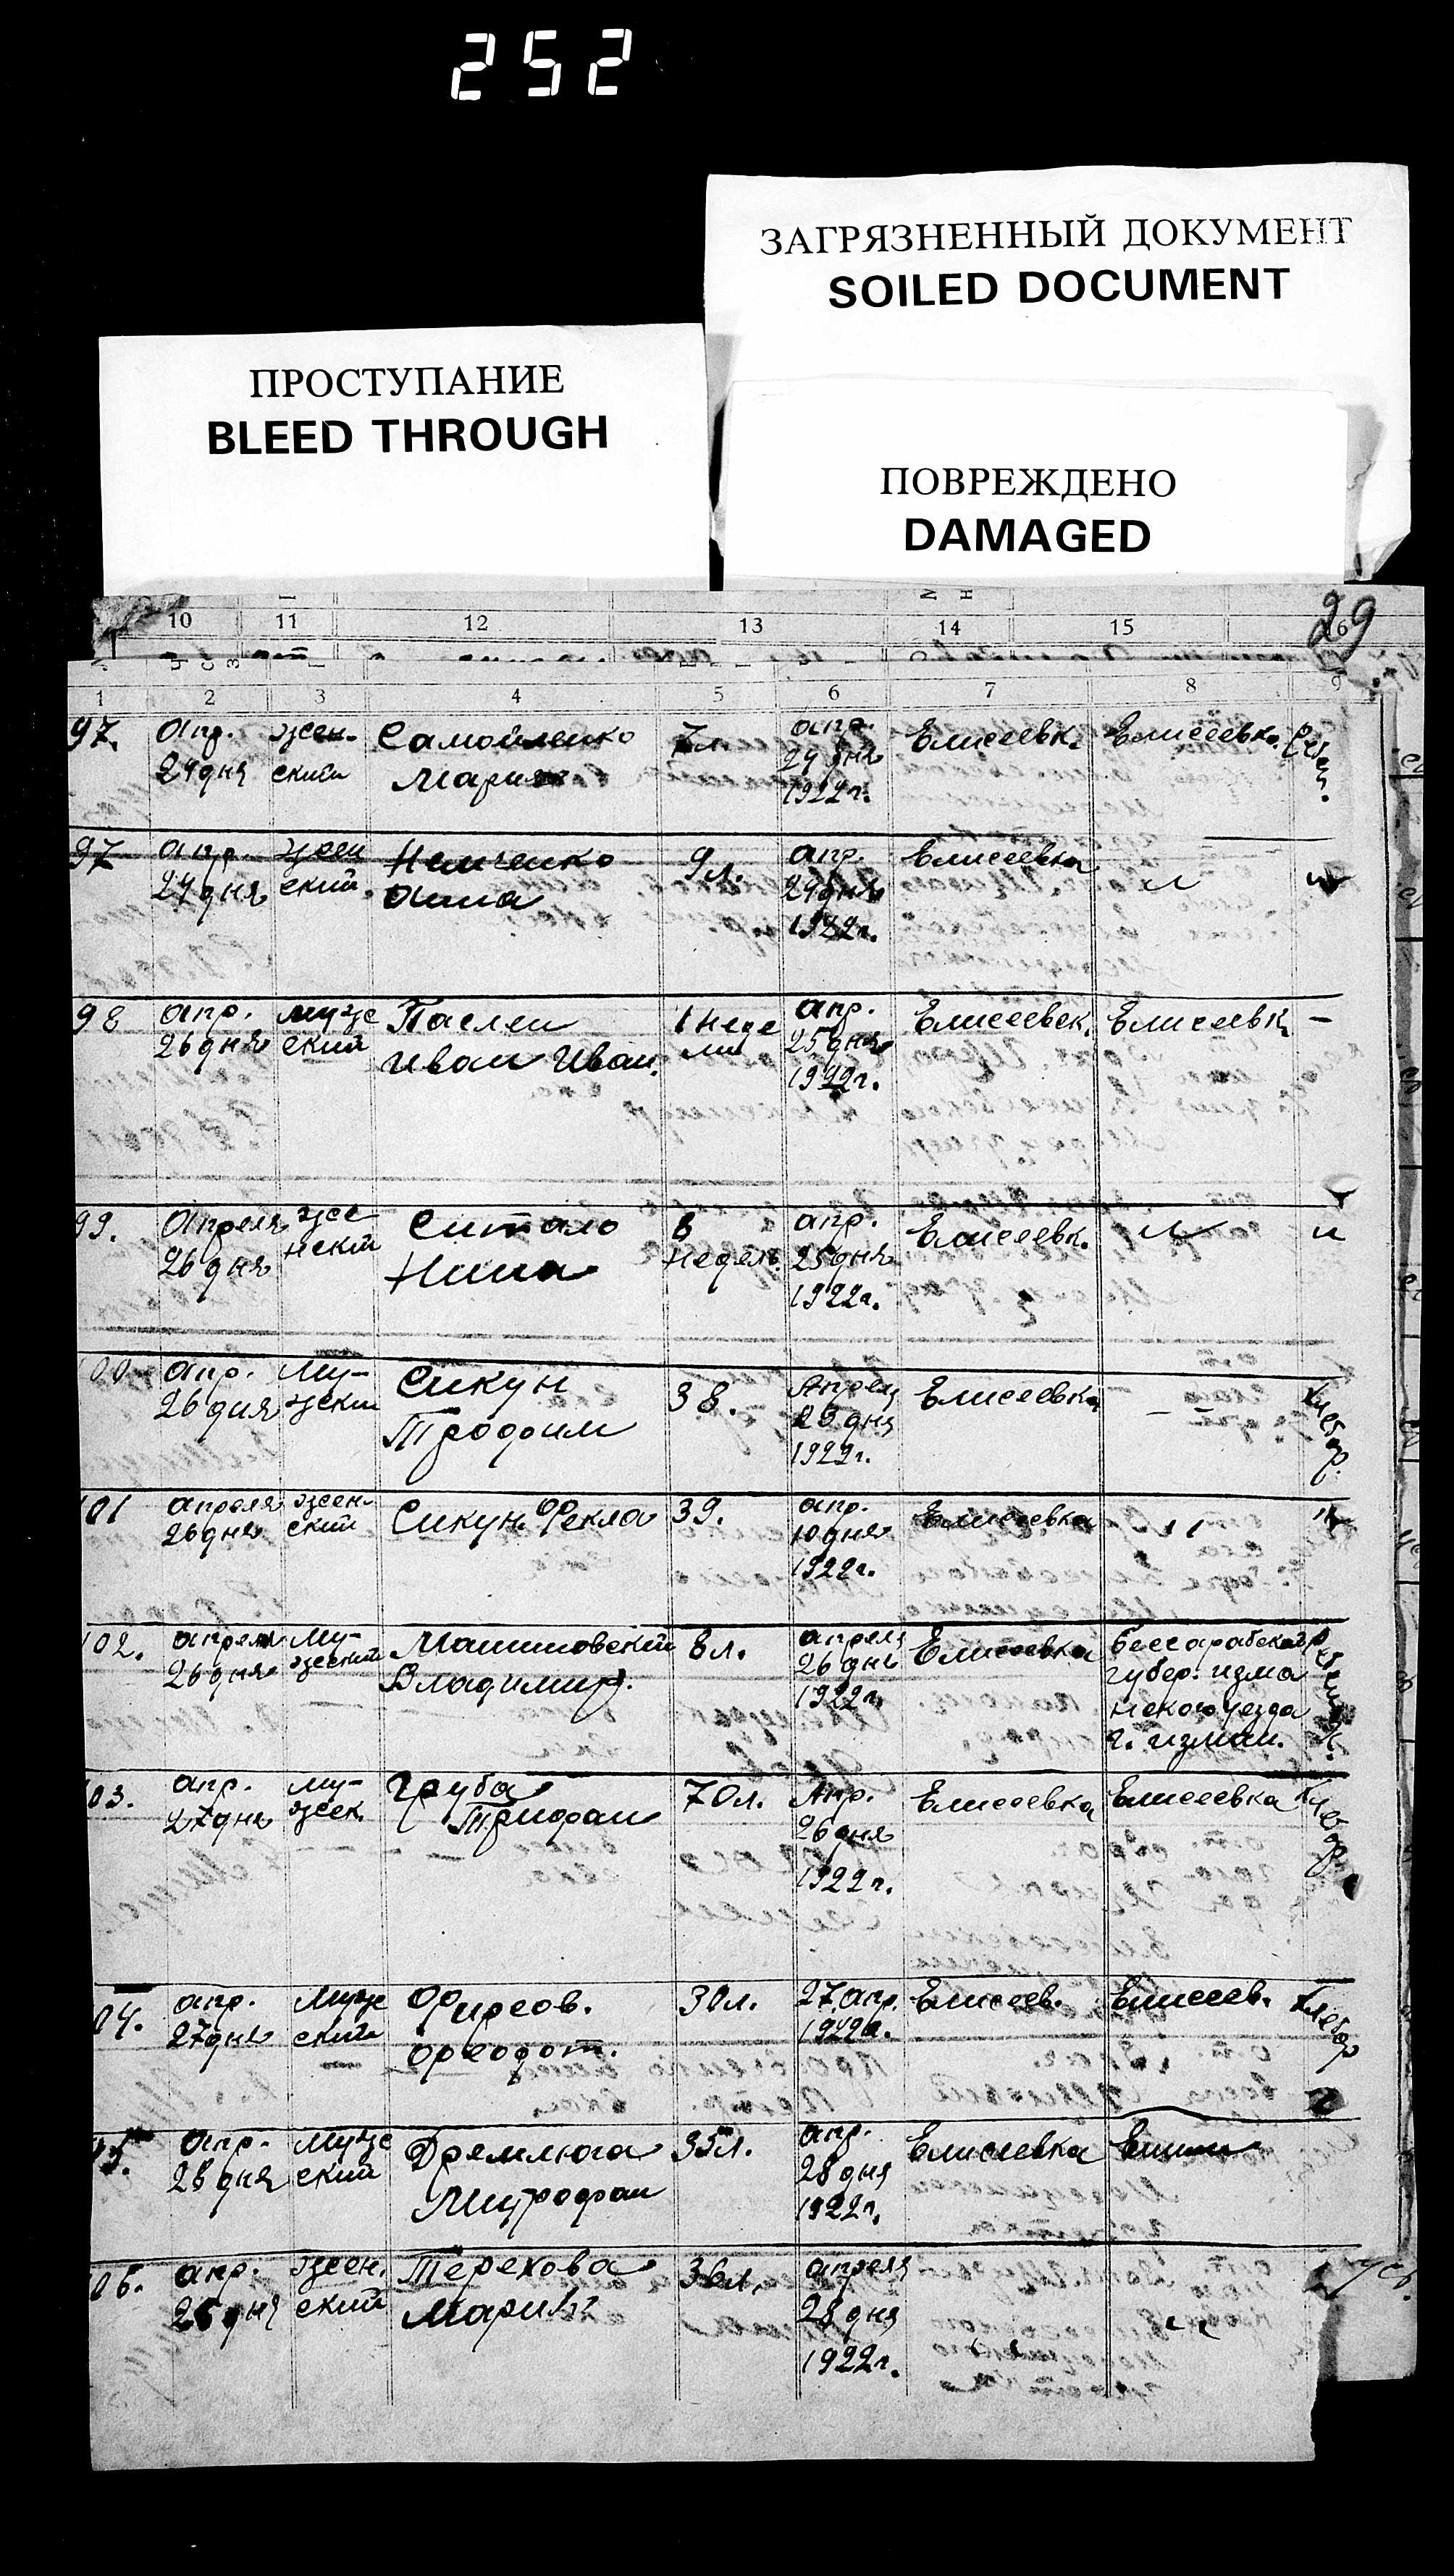 252
ЗАГРЯЗНЕННЫЙ ДОКУМЕНТ
SOILED DOCUMENT
ПРОСТУПАНИЕ
BLEED THROUGH
ПОВРЕЖДЕНО
DAMAGED
29
10 11 12 13 14 15 16
1 2 3 4 5 6 7 8 9
97. Апр. жен- Самойленко 7л. апр. Елисеевк. Елисеевка
24 дня ский Мария 24 дня
1922 г.
97 апр. жен Немченко 9л. апр. Елисеевка
24 дня ский. Анна 24 дня
1922 г.
98 апр. муж Паслен 1 неде апр. Елисеевск. Елисеевк. —
26 дня ский Иван Иван. ли 25 дня
1922 г.
99. Апреля же Ситало 8 апр. Елисеевк. и и
26 дня нский Нина недель. 25 дня
1922 г.
100 апр. му- Сикун 38. Апреля Елисеевка — — Хлебор.
26 дня жский Трофим дня
1922 г.
101 апреля жен- Сикун Фекла 39. апр. Елисеевка ,,
26 дня ский 10 дня
1922 г.
102. апреля му- Владимир. 8л. апреля Елисеевка Бессарабской
26 дня жский 26 дня губер. Изма
1922 г. нского уезда
г. Измаи.
103. апр. му- Груба 70л. Апр. Елисеевка Елисеевка Хлебор.
27 дня жск. Трифан 26 дня
1922 г.
104. апр. муж Фирсов. 30л. 27 апр. Елисеев. Елисеев. Хлебор
27 дня ский Феодот. 1922 г.
105. апр. муж Дремлюга 35л. апр. Елисеевка
28 дня ский Митрофан 28 дня
1922 г.
106. апр. жен. Терехова апреля
дня ский Мария 28 дня ,, ,,
1922 г.